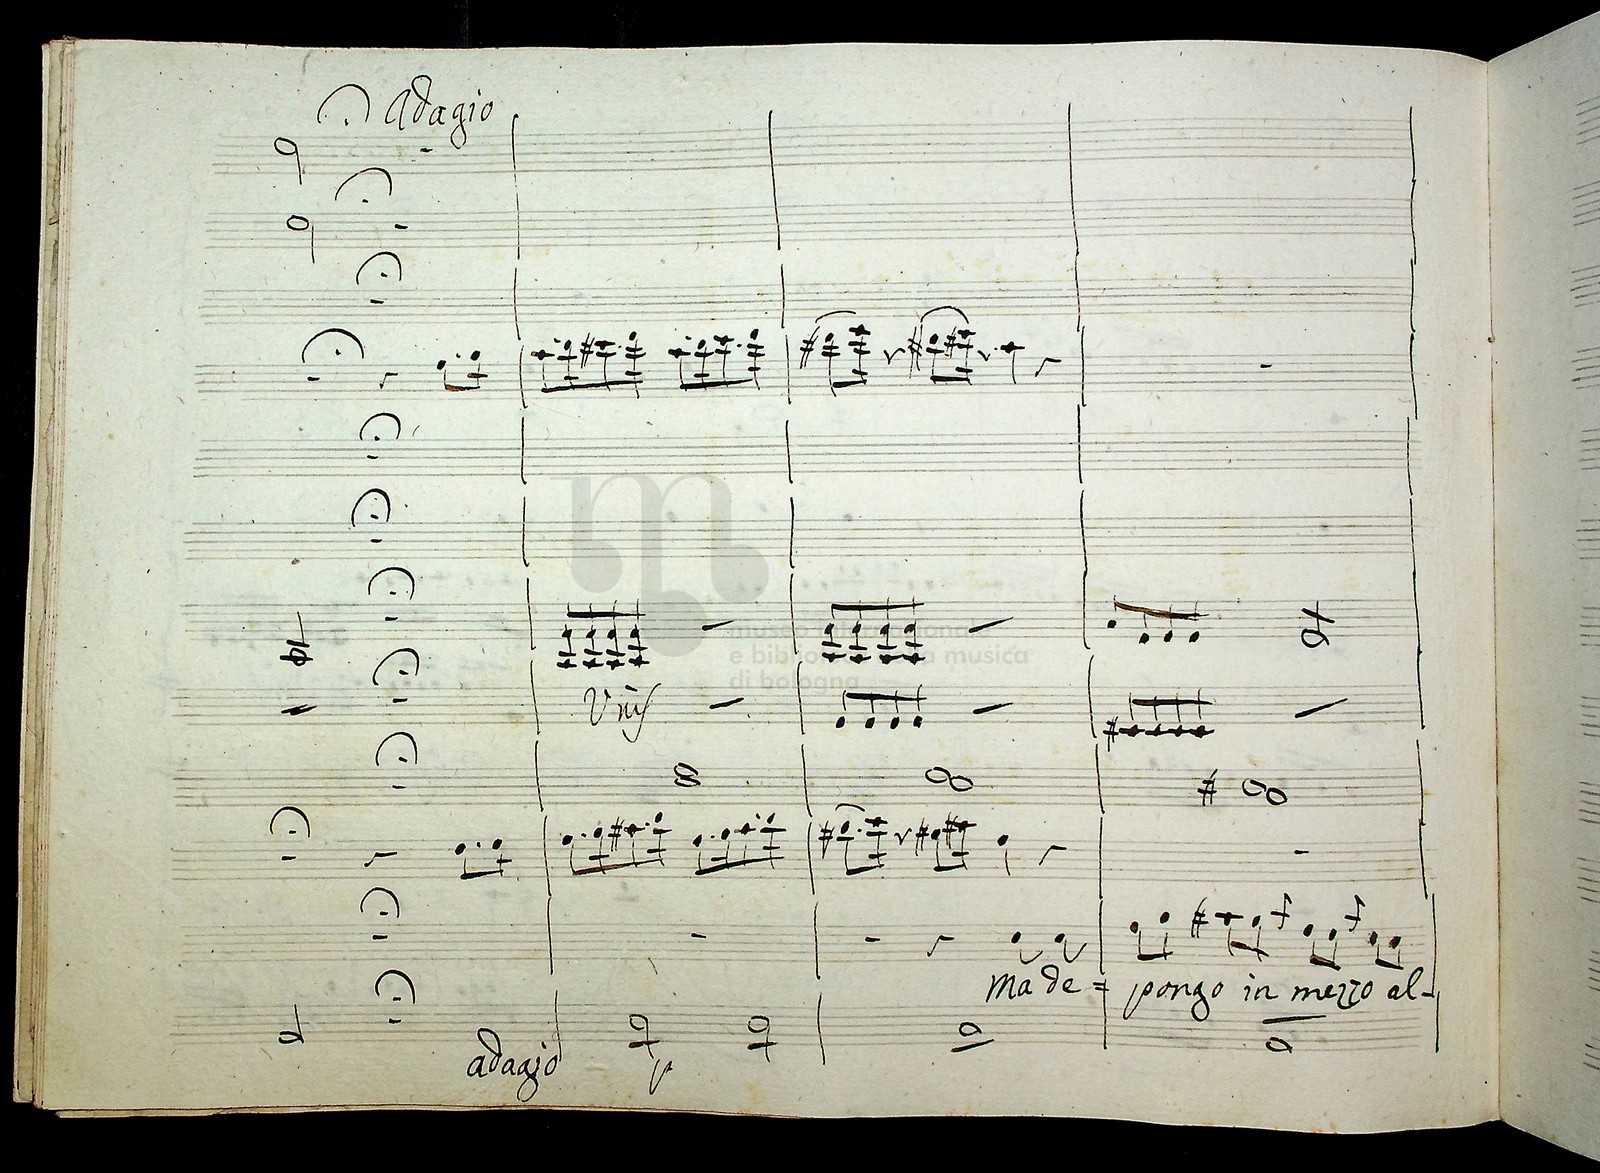 Adagio
museo internazionale
e biblioteca della musica
di bologna
Unis
Ma de= pongo in mezzo al-
adagio
p